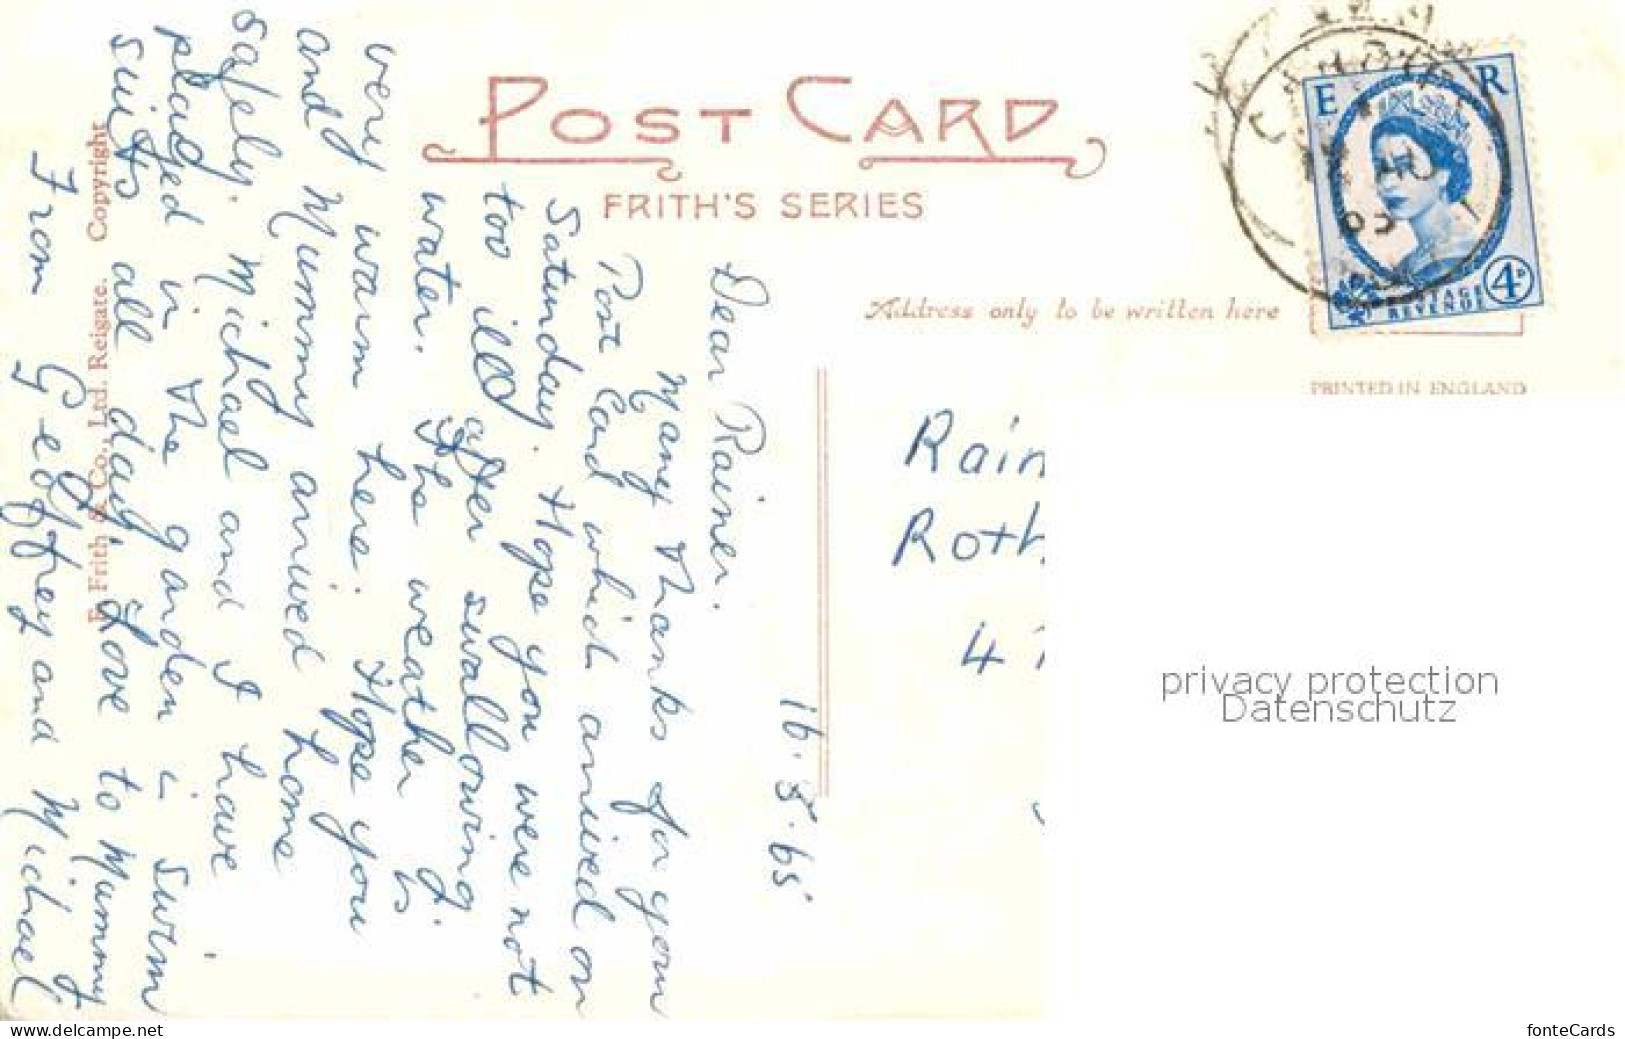 POST CARD
FRITH'S SERIES
Address only to be written here
PRINTED IN ENGLAND
E R
POSTAGE
REVENUE
4D
16.8.65
Dear Rainer.
Many thanks for your
Post Card which arrived on
Saturday. Hope you were not
too ill after swallowing
water. The weather is
very warm here. Hope you
and Mummy arrived home
safely. Michael and I have
played in the garden in swim
suits all day. Love to Mummy
From Geoffrey and Michael
F. Frith & Co., Ltd. Reigate. Copyright
Rain
Roth
4
privacy protection
Datenschutz
www.delcampe.net
fonteCards